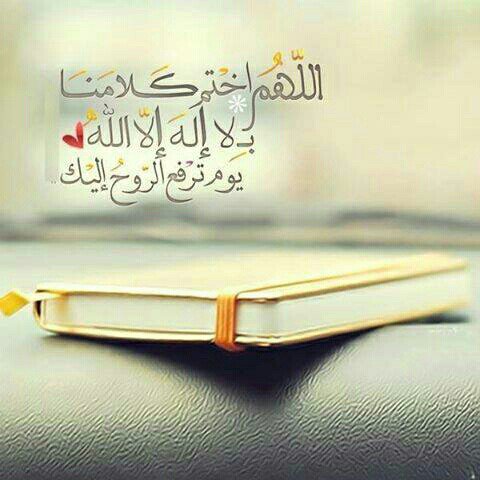 اللّهُم اختم كَلامَنَا
بِـ لا إِلهَ إلّا اللّٰهُ
يَوم تَرْفع الرّوحُ إليْك ..